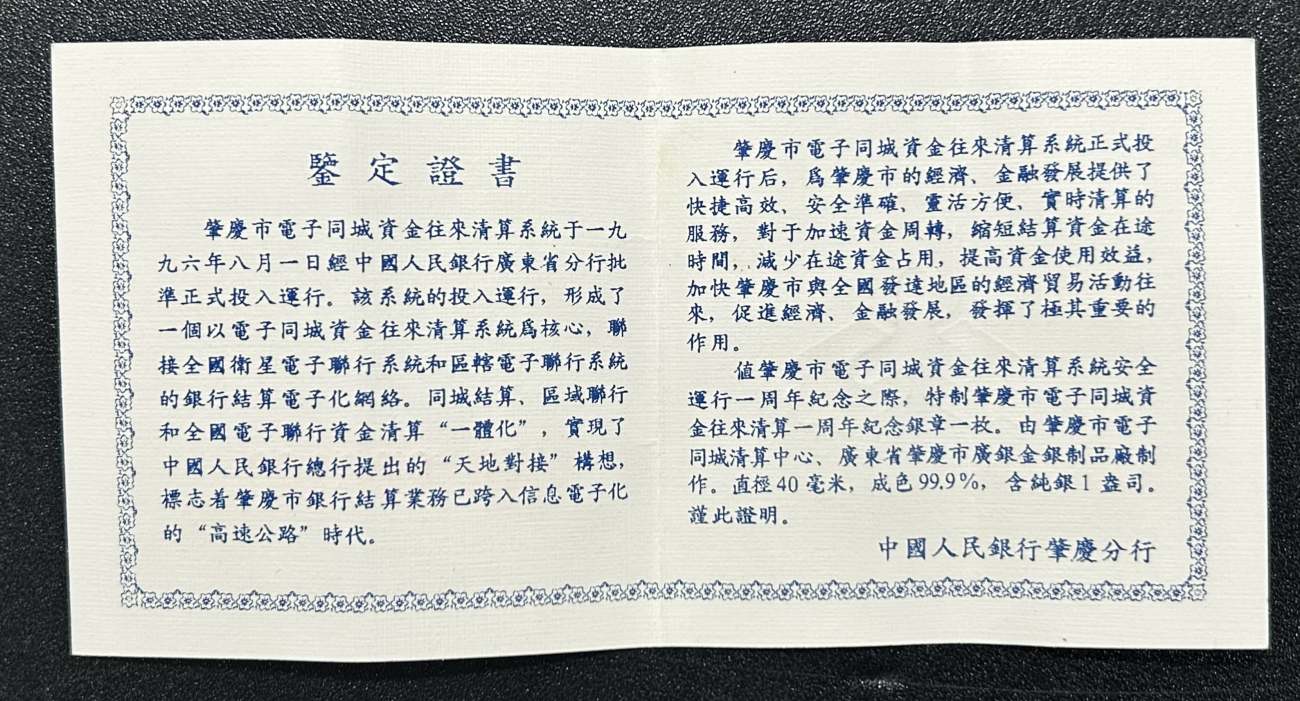 鑒定證書
肇慶市電子同城資金往來清算系統于一九
九六年八月一日經中國人民銀行廣東省分行批
準正式投入運行。該系統的投入運行，形成了
一個以電子同城資金往來清算系統爲核心，聯
接全國衛星電子聯行系統和區轄電子聯行系統
的銀行結算電子化網絡。同城結算、區域聯行
和全國電子聯行資金清算“一體化”，實現了
中國人民銀行總行提出的“天地對接”構想，
標志着肇慶市銀行結算業務已跨入信息電子化
的“高速公路”時代。
肇慶市電子同城資金往來清算系統正式投
入運行后，爲肇慶市的經濟、金融發展提供了
快捷高效、安全準確、靈活方便、實時清算的
服務，對于加速資金周轉，縮短結算資金在途
時間，減少在途資金占用，提高資金使用效益，
加快肇慶市與全國發達地區的經濟貿易活動往
來，促進經濟、金融發展，發揮了極其重要的
作用。
值肇慶市電子同城資金往來清算系統安全
運行一周年紀念之際，特制肇慶市電子同城資
金往來清算一周年紀念銀章一枚。由肇慶市電子
同城清算中心、廣東省肇慶市廣銀金銀制品廠制
作。直徑40毫米，成色99.9%，含純銀1盎司。
謹此證明。
中國人民銀行肇慶分行